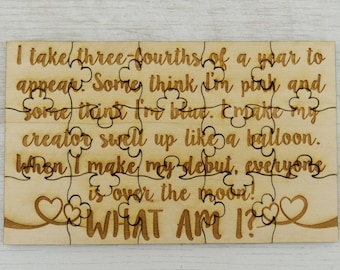 I take three-fourths of a year to
appear. Some think I'm pink and
some think I'm blue. I make my
creator swell up like a balloon.
When I make my debut, everyone
is over the moon!
WHAT AM I?